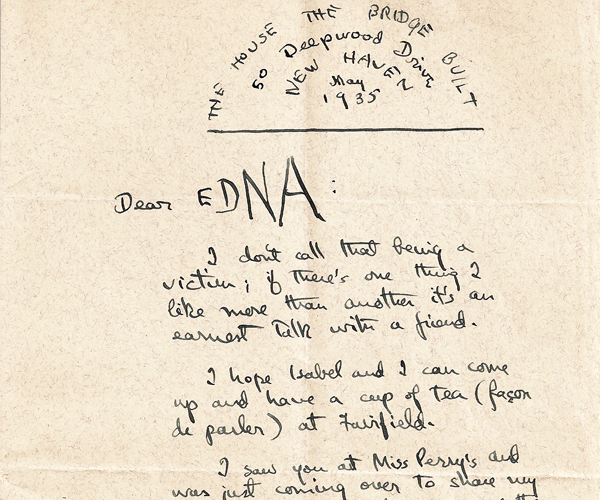 THE HOUSE THE BRIDGE BUILT
50 Deepwood Drive
NEW HAVEN
May
1935
Dear EDNA:
I don't call that being a
victim; if there's one thing I
like more than another it's an
earnest talk with a friend.
I hope Isabel and I can come
up and have a cup of tea (façon
de parler) at Fairfield.
I saw you at Miss Perry's and
was just coming over to share my